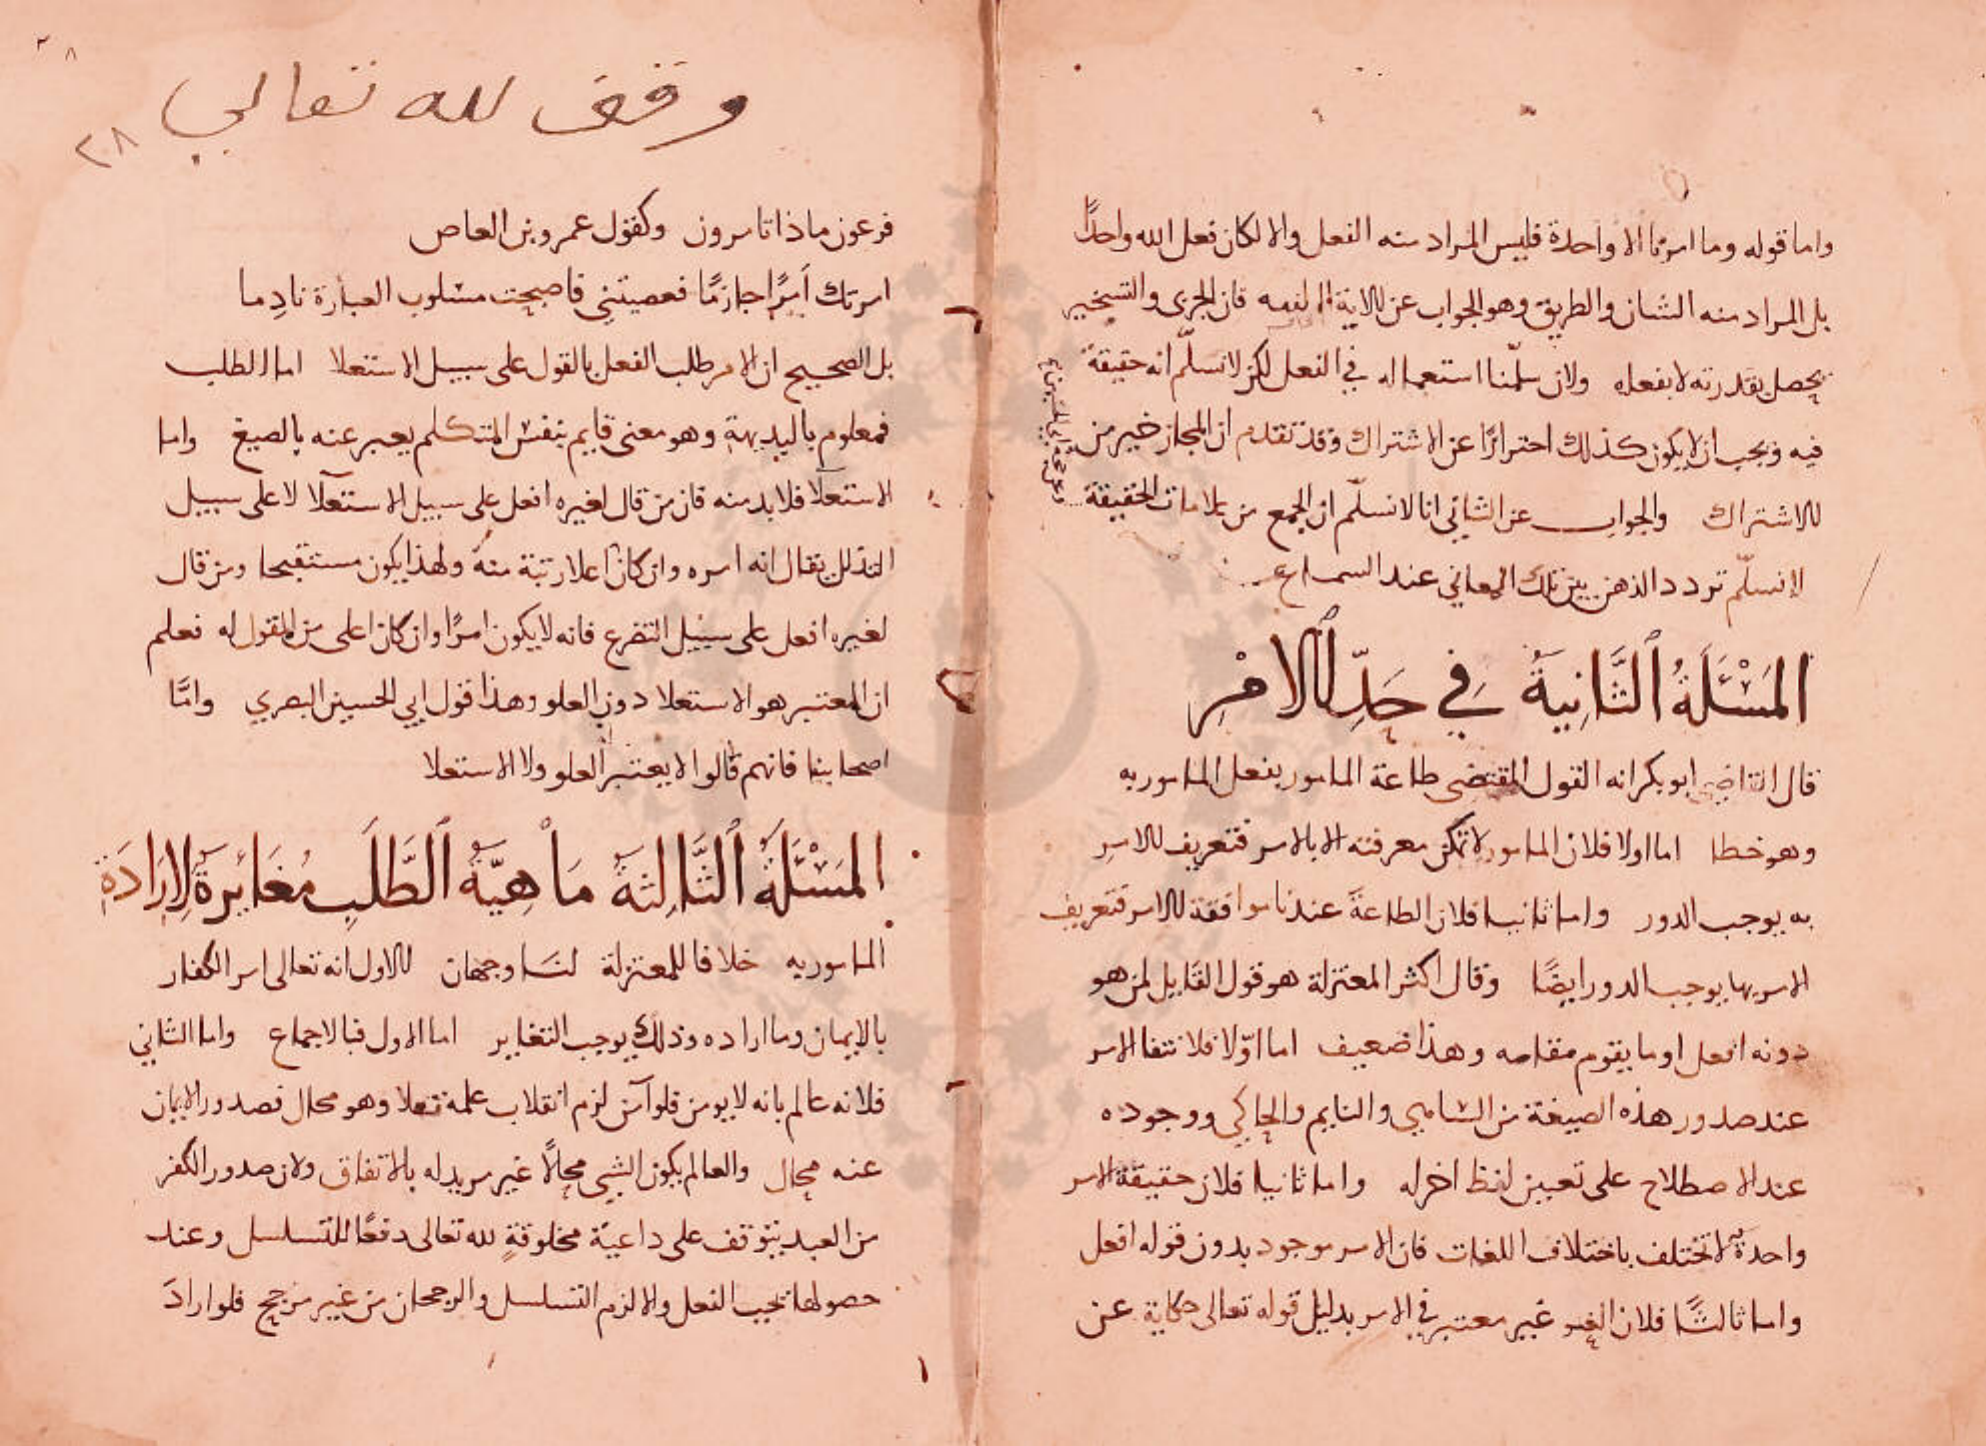 واما قوله وما امرنا الا واحدة فليس المراد منه الفعل والا لكان فعل الله واحدًا
بل المراد منه الشان والطريق وهو الجواب عن الاية فان الجري والتسخير
يحصل بقدرته لا بفعله ولان سلّمنا استعماله في الفعل لكن لا نسلّم انه حقيقة
فيه ويجب ان لا يكون كذلك احترازًا عن الاشتراك وقد تقدم ان المجاز خير من
الاشتراك والجواب عن الثاني انا لا نسلّم ان الجمع من علامات الحقيقة
لا نسلّم تردد الذهن بين تلك المعاني عند السماع
المَسْئَلَةُ الثَّانِيَةُ في حَدِّ الامْرِ
قال القاضي ابو بكر انه القول المقتضى طاعة المامور بفعل المامور به
وهو خطا اما اولا فلان المامور لا تمكن معرفته الا بالامر فتعريف الامر
به يوجب الدور واما ثانيا فلان الطاعة عندنا موافقة الامر فتعريف
الامر بها يوجب الدور ايضًا وقال اكثر المعتزلة هو قول القايل لمن هو
دونه افعل او ما يقوم مقامه وهذا ضعيف اما اوّلا فلانتفا الامر
عند صدور هذه الصيغة من الساهي والنايم والحاكي ووجوده
عند الاصطلاح على تعيين لفظ اخر له واما ثانيا فلان حقيقة الامر
واحدة لا تختلف باختلاف اللغات فان الامر موجود بدون قوله افعل
واما ثالثًا فلان العلو غير معتبر في الامر بدليل قوله تعالى حكاية عن
وقف لله تعالى
٢٨
فرعون ماذا تامرون وكقول عمرو بن العاص
امرتك أمرًا جازمًا فعصيتني فاصبحت مسلوب العبارة نادِما
بل الصحيح ان الامر طلب الفعل بالقول على سبيل الاستعلا اما الطلب
فمعلوم بالبديهة وهو معنى قايم بنفس المتكلم يعبر عنه بالصيغ واما
الاستعلا فلا بد منه فان من قال لغيره افعل على سبيل الاستعلا لا على سبيل
التذلل يقال انه امره وان كان اعلا رتبة منه ولهذا يكون مستقبحا ومن قال
لغيره افعل على سبيل التضرع فانه لا يكون امرًا وان كان اعلى من المقول له فعلم
ان المعتبر هو الاستعلا دون العلو وهذا قول ابي الحسين البصري وامّا
اصحابنا فانهم قالوا لا يعتبر العلو ولا الاستعلا
المَسْئَلَةُ الثَّالِثَةُ مَاهِيَّةُ الطَّلَبِ مُغَائِرَةٌ لِارَادَةِ
المامور به خلافا للمعتزلة لنا وجهان الاول انه تعالى امر الكفار
بالايمان وما اراده وذلك يوجب التغاير اما الاول فبالاجماع واما الثاني
فلانه عالم بانه لا يومن فلو آمن لزم انقلاب علمه تعلا وهو محال فصدور الايمان
عنه محال والعالم بكون الشي محالًا غير مريد له بالاتفاق ولان صدور الكفر
من العبد يتوقف على داعية مخلوقةٍ لله تعالى دفعًا للتسلسل وعند
حصولها يجب الفعل والا لزم التسلسل والرجحان من غير مرجح فلو ارادَ